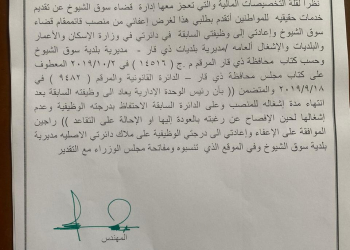 نظرا لقلة التخصيصات المالية والتي تعجز معها إدارة قضاء سوق الشيوخ عن تقديم
خدمات حقيقيه للمواطنين أتقدم بطلبي هذا لغرض إعفائي من منصب قائممقام قضاء
سوق الشيوخ وإعادتي إلى وظيفتي السابقة في دائرتي في وزارة الإسكان والأعمار
والبلديات والاشغال العامه /مديرية بلديات ذي قار - مديرية بلدية سوق الشيوخ
وحسب كتاب محافظة ذي قار المرقم م .ج ( ١٤٠١٦ ) في ٢٠١٩/١٠/٢ المعطوف
على كتاب مجلس محافظة ذي قار – الدائرة القانونية والمرقم ( ٩٤٨٢ ) في
٢٠١٩/٩/١٨ والمتضمن (( بأن رئيس الوحدة الادارية يعاد الى وظيفته السابقة بعد
انتهاء مدة إشغاله للمنصب وعلى الدائرة السابقة الاحتفاظ بدرجته الوظيفية وعدم
إشغالها لحين الإفصاح عن رغبته بالعودة إليها او الإحالة على التقاعد )) راجين
الموافقة على الإعفاء وإعادتي الى درجتي الوظيفية على ملاك دائرتي الاصليه مديرية
بلدية سوق الشيوخ وفي الموقع الذي تنسبوه ومفاتحة مجلس الوزراء مع التقدير
المهندس